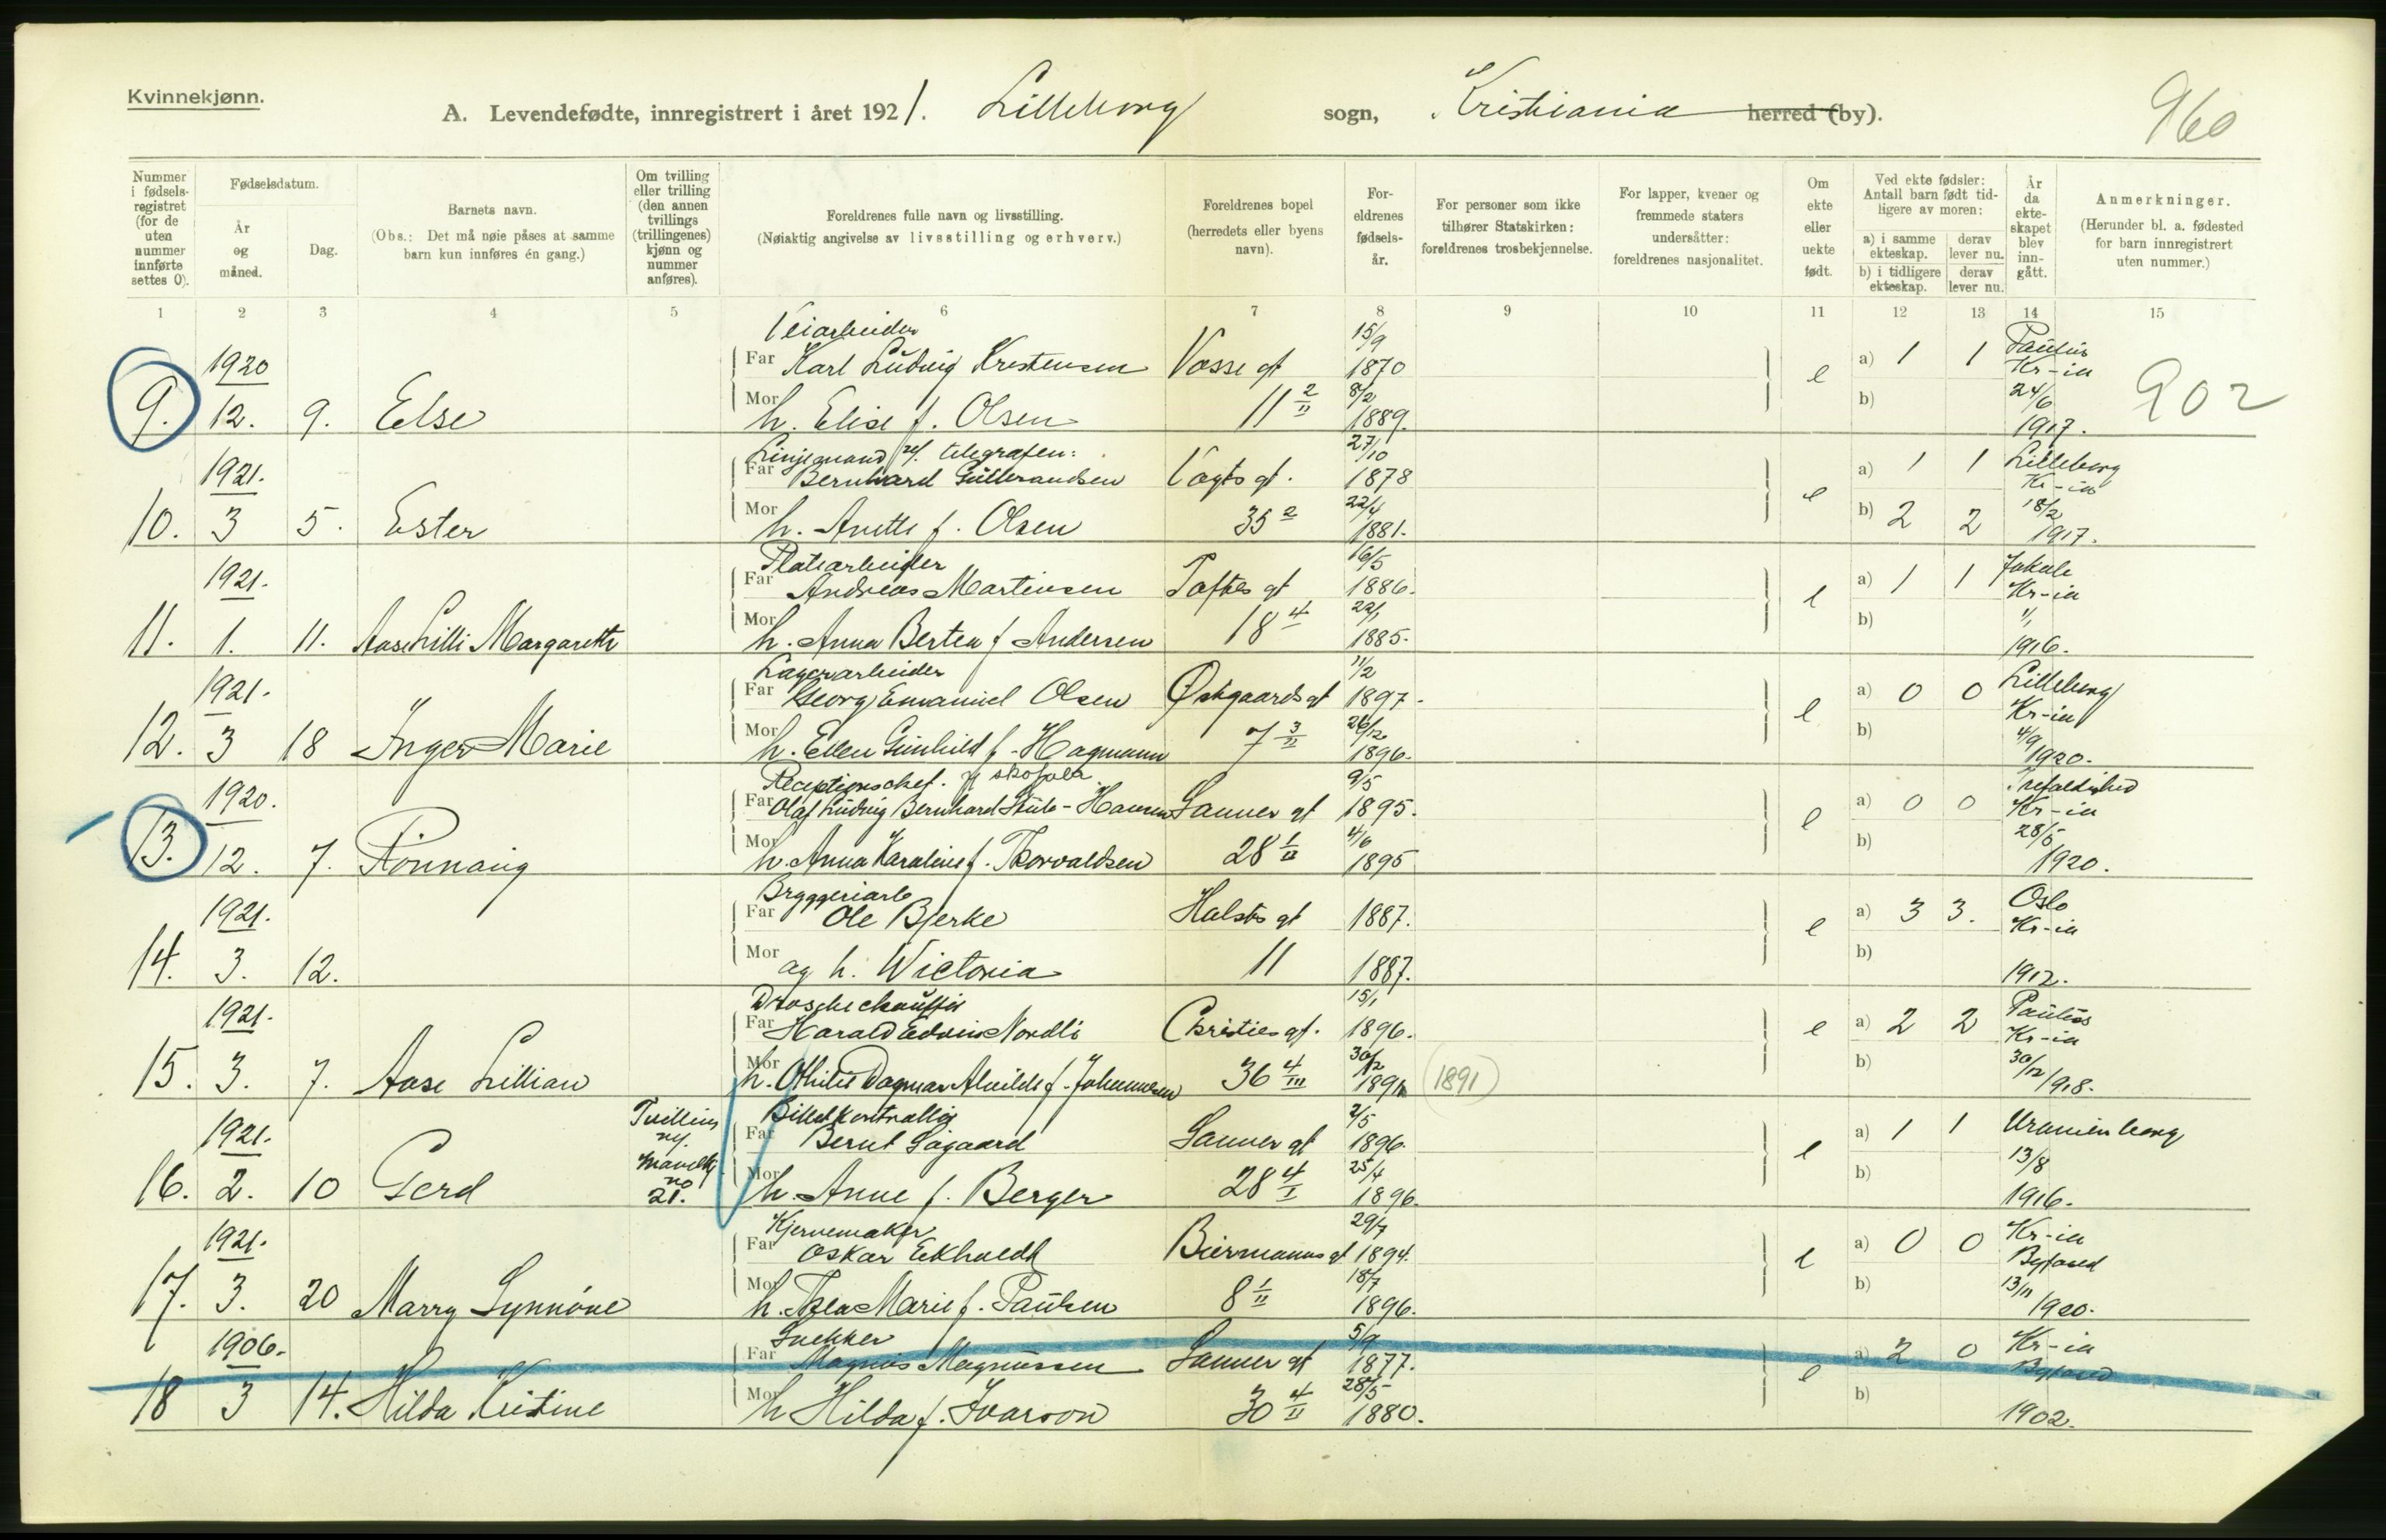 Kvinnekjønn.
A. Levendefødte, innregistrert i året 1921. Lilleborg sogn, Kristiania herred (by).
960
Nummer i fødsels-registret (for de uten nummer innførte settes 0).
Fødselsdatum.
År og måned.
Dag.
Barnets navn.
(Obs.: Det må nøie påses at samme barn kun innføres én gang.)
Om tvilling eller trilling (den annen tvillings (trillingenes) kjønn og nummer anføres).
Foreldrenes fulle navn og livsstilling.
(Nøiaktig angivelse av livsstilling og erhverv.)
Foreldrenes bopel (herredets eller byens navn).
For-eldrenes fødsels-år.
For personer som ikke tilhører Statskirken: foreldrenes trosbekjennelse.
For lapper, kvener og fremmede staters undersåtter: foreldrenes nasjonalitet.
Om ekte eller uekte født.
Ved ekte fødsler: Antall barn født tid-ligere av moren:
a) i samme ekteskap.
derav lever nu.
b) i tidligere ekteskap.
derav lever nu.
År da ekte-skapet blev inn-gått.
Anmerkninger.
(Herunder bl. a. fødested for barn innregistrert uten nummer.)
1 2 3 4 5 6 7 8 9 10 11 12 13 14 15
Veiarbeider 15/9
1920 Far Karl Ludvig Kristensen Vosse gt 1870 e a) 1 1 Paulus Kr-ia
9. 12. 9. Else Mor h. Elise f. Olsen 11 2/II 8/2 1889. b) 24/6 1917. 902
Linjemand v/ telegrafen: 27/10
1921. Far Bernhard Gulbrandsen Vogts gt. 1878 e a) 1 1 Lilleborg Kr-ia
10. 3 5. Ester Mor h. Anette f. Olsen 35 2 22/4 1881. b) 2 2 18/2 1917.
Platearbeider 16/5
1921. Far Andreas Martinsen Toftes gt 1886. e a) 1 1 Jakob Kr-ia
11. 1. 11. Aase Lilli Margareth Mor h. Anna Bertea f Andersen 18 4 22/1 1885. b) 1/1 1916.
Lagerarbeider 11/2
1921. Far Georg Emanuel Olsen Østgaards gt 1897. e a) 0 0 Lilleborg Kr-ia
12. 3 18 Inger Marie Mor h. Ellen Gunhild f. Hagmann 7 3/II 26/12 1896. b) 4/9 1920.
Receptionschef. 9/5
1920. Far Olaf Ludvig Bernhard Hansen Sanner gt 1895. e a) 0 0 Trefoldighed Kr-ia
13. 12. 7. Rønnaug Mor h. Anna Karoline f. Thorvaldsen 28 1/II 4/6 1895 b) 28/5 1920.
Bryggeriarb
1921. Far Ole Bjerke Holsts gt 1887. e a) 3 3. Oslo Kr-ia
14. 3. 12. Mor og h. Wictoria 11 1887. b) 1912.
Droschechauffør 15/1
1921. Far Harald Edvin Nordli Christies gt. 1896. e a) 2 2 Paulus Kr-ia
15. 3. 7. Aase Lillian Mor h. Othilie Dagmar Alvilde f. Johannesen 36 4/III 30/12 1891 (1891) b) 30/12 1918.
Tvilling Billetkontrollør 2/5
1921. Far Bernt Sagaard Sanner gt 1896. e a) 1 1 Uranienborg
16. 2. 10 Gerd no 21. Mor h. Anne f. Berger 28 4/I 25/4 1896. b) 13/8 1916.
Kjernemaker 29/7
1921. Far Oskar Eckholdt Biermanns gt 1894. e a) 0 0 Kr-ia Byfoged
17. 3. 20 Marry Synnöve Mor h. Thea Marie f. Paulsen 8 1/II 18/7 1896. b) 13/11 1920.
Snekker 5/9
1906. Far Magnus Magnussen Sanner gt 1877. e a) 2 0 Kr-ia Byfoged
18 3 14. Hilda Kristine Mor h Hilda f. Ivarson 30 4/II 28/5 1880. b) 1902.